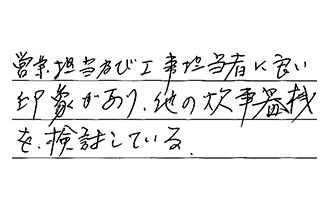 営業担当及び工事担当者に良い
印象があり、他の炊事器機
を、検討している。